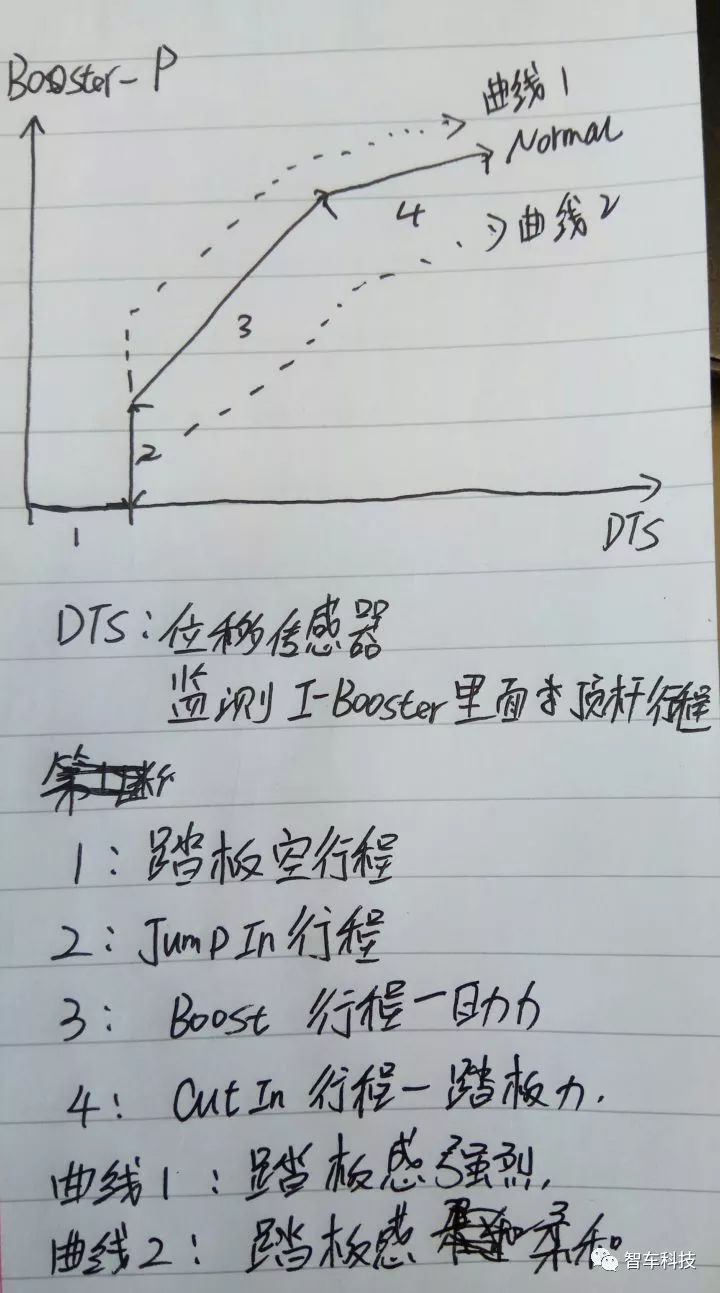 Booster-P
曲线1
Normal
4
曲线2
3
2
1
DTS
DTS:位移传感器
监测 I-Booster里面 顶杆行程
1:踏板空行程
2:Jump In 行程
3: Boost 行程-助力
4: Cut In 行程-踏板力.
曲线1:踏板感强烈.
曲线2:踏板感 柔和
智车科技